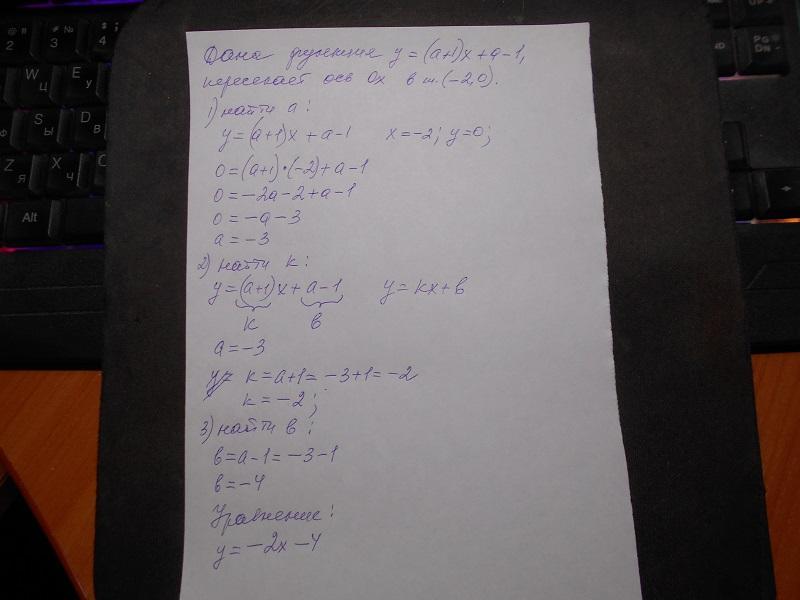 Дана функция y=(a+1)x+a-1,
пересекает ось Ox в т.(-2,0).
1) найти a:
y=(a+1)x+a-1 x=-2; y=0;
0=(a+1)•(-2)+a-1
0=-2a-2+a-1
0=-a-3
a=-3
2) найти k:
y=(a+1)x+a-1 y=kx+в
k в
a=-3
k=a+1=-3+1=-2
k=-2;
3) найти в:
в=a-1=-3-1
в=-4
Уравнение:
y=-2x-4
@ "
2
# №
3
$ ;
4
W
Ц
E
У
S
Ы
D
В
Z
Я
X
Ч
C
С
Alt
PG
DN